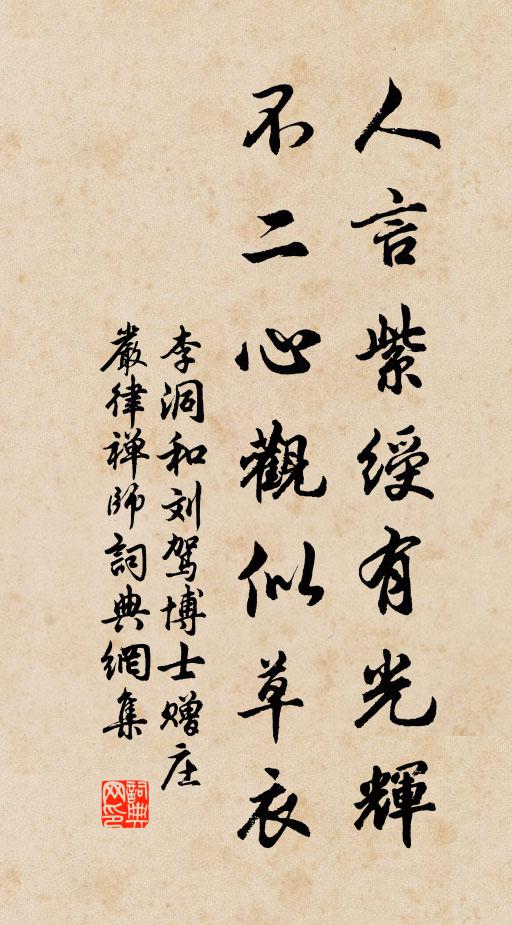 人言紫綬有光輝
不二心觀似草衣
李洞和刘驾博士赠庄
嚴律禅師詞典網集
詞典网印